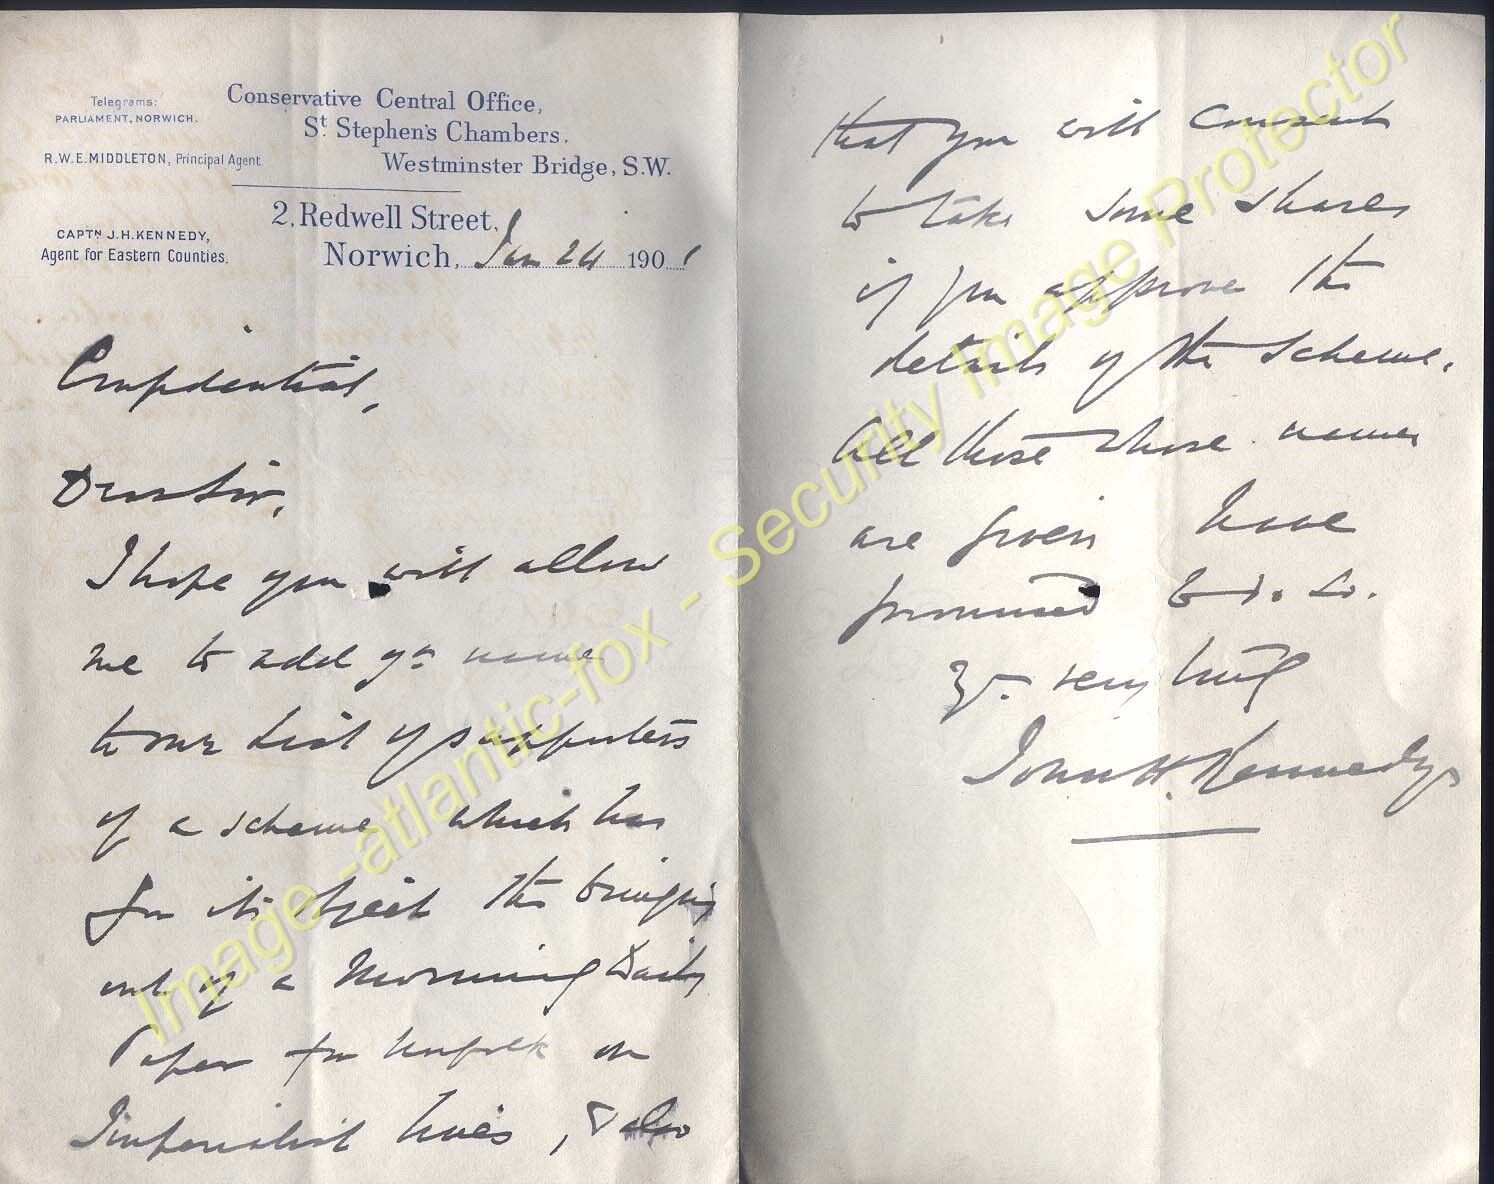 Telegrams:
PARLIAMENT, NORWICH.
R.W.E. MIDDLETON, Principal Agent.
CAPTN J.H. KENNEDY,
Agent for Eastern Counties.
Conservative Central Office,
St Stephen's Chambers,
Westminster Bridge, S.W.
2, Redwell Street,
Norwich, Jan 24 1901
Confidential,
Dear Sir,
I hope you will allow
me to add yr name
to our list of supporters
of a scheme which has
for its object the bringing
out of a Morning Daily
Paper for Norfolk on
Imperialist lines, & also
that you will consent
to take some shares
if you approve the
details of the scheme.
All those whose names
are given have
promised to do so.
Yr. very truly
John H. Kennedy
Image -atlantic-fox - Security Image Protector